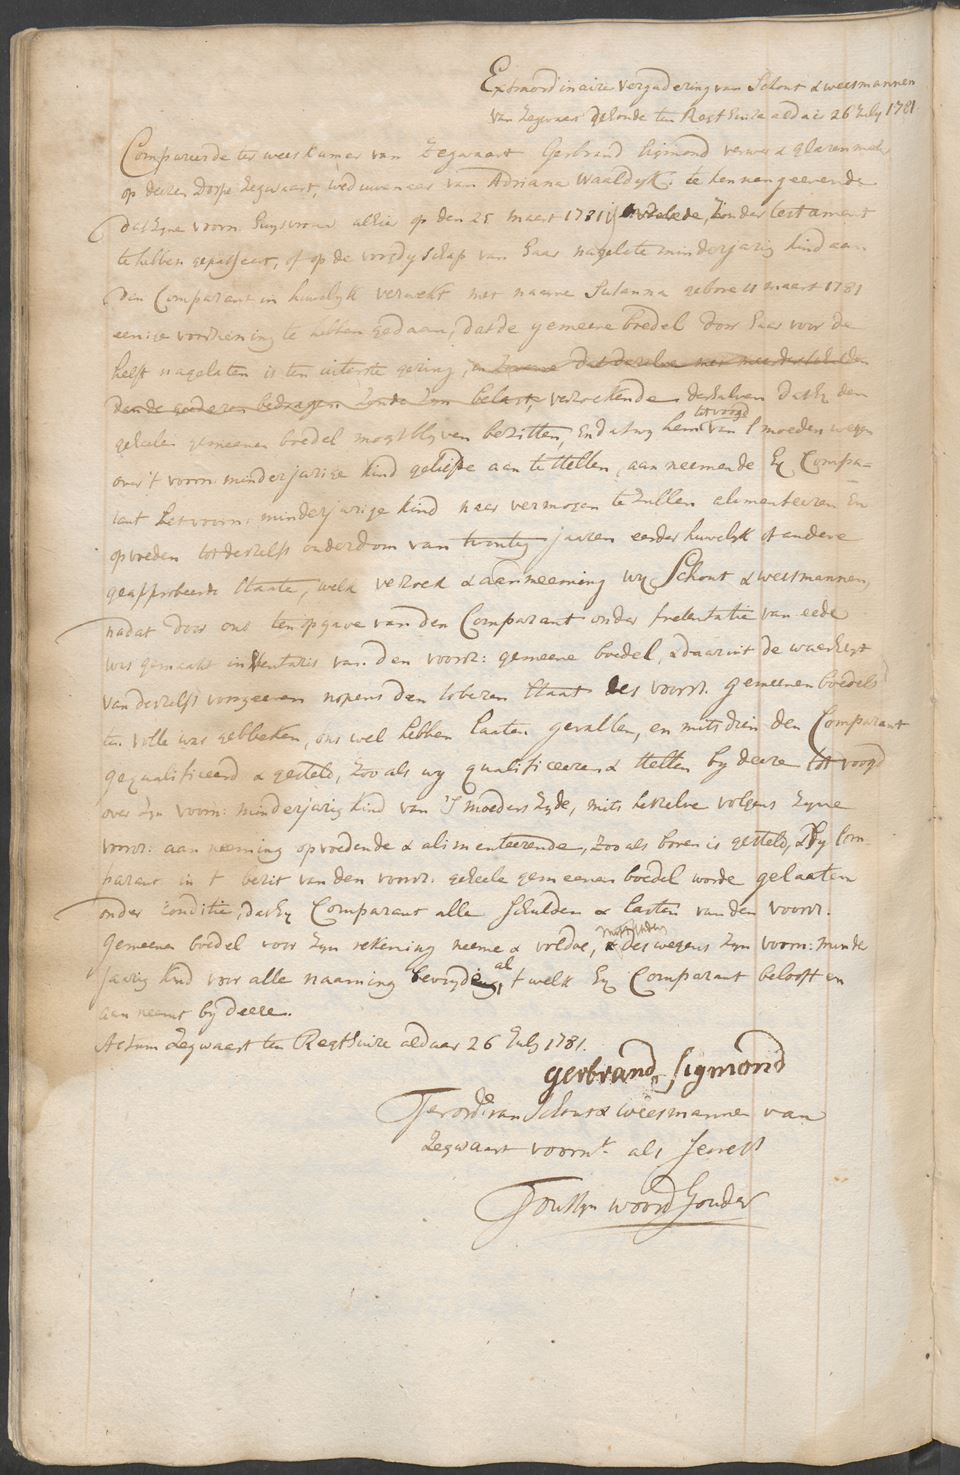 Extraordinaire vergadering van Schout & weesmannen
van Zegwaart gehoude ten Regthuize aldaer 26 July 1781
Compareerde ter weeskamer van Zegwaart Gerbrand Sigmond verwer & glazenmaker
op dezen Dorpe Zegwaart, weduwenaer van Adriana Waaldyk, te kennen geevende
dat zyne voorn. huysvrouw alhier op den 25 maart 1781 is overlede, zonder testament
te hebben gepasseert, of op de voogdyschap van haar nagelate minderjarig kind aan
den Comparant in huwelyk verwekt met naeme Susanna gebore 11 maart 1781
eenige voorziening te hebben gedaan, dat de gemeene boedel door haar voor de
helft nagelaten is ten uiterste gering, en zoverre dat dezelve met meer schulden
dan de goederen bedragen zoude zyn belast, verzoekende derhalven dat hy den
geheelen gemeenen boedel mogt blyven bezitten, en dat wy hem tot voogd van 's moeders wegen
over 't voorn: minderjarige kind geliefde aan te stellen, aanneemende hy Compa=
rant het voorn: minderjarige kind naar vermogen te zullen alimenteeren en
opvoeden tot deszelfs ouderdom van twintig jaaren eerder huwelyk of andere
geapprobeerde staate, welk verzoek & aanneeming wy Schout & weesmannen,
nadat door ons ten opgave van den Comparant onder presentatie van eede
was gemaakt inventaris van den voorz: gemeene boedel, & daaruit de waerheyt
van deszelfs voorgeeven nopens den soberen staat des voorz. gemeenen boedels
ten volle was gebleken, ons wel hebben laaten gevallen, en mitsdien den Comparant
gequalificeerd & gesteld, zoo als wy qualificeeren & stellen by deeze tot voogd
over zyn voorn: minderjarig kind van 's moeders zyde, mits hetzelve volgens zyne
voorz: aanneeming opvoedende & alimenteerende, zoo als boven is gesteld, & hy Com-
parant in 't bezit van den voorz. geheele gemeenen boedel worde gelaaten
onder conditie, dat hy Comparant alle schulden & lasten van den voorz.
gemeenen boedel voor zyn rekening neeme & voldoe, & des wegens zyn voorn: minder
jarig kind voor alle naaming bevryde, al 't welk hy Comparant belooft en
aanneemt by deeze.
Actum Zegwaart ten Regthuize aldaar 26 July 1781.
gerbrand Sigmond
Ter ord: van Schout & weesmannen van
Zegwaart voornt. als Secrets